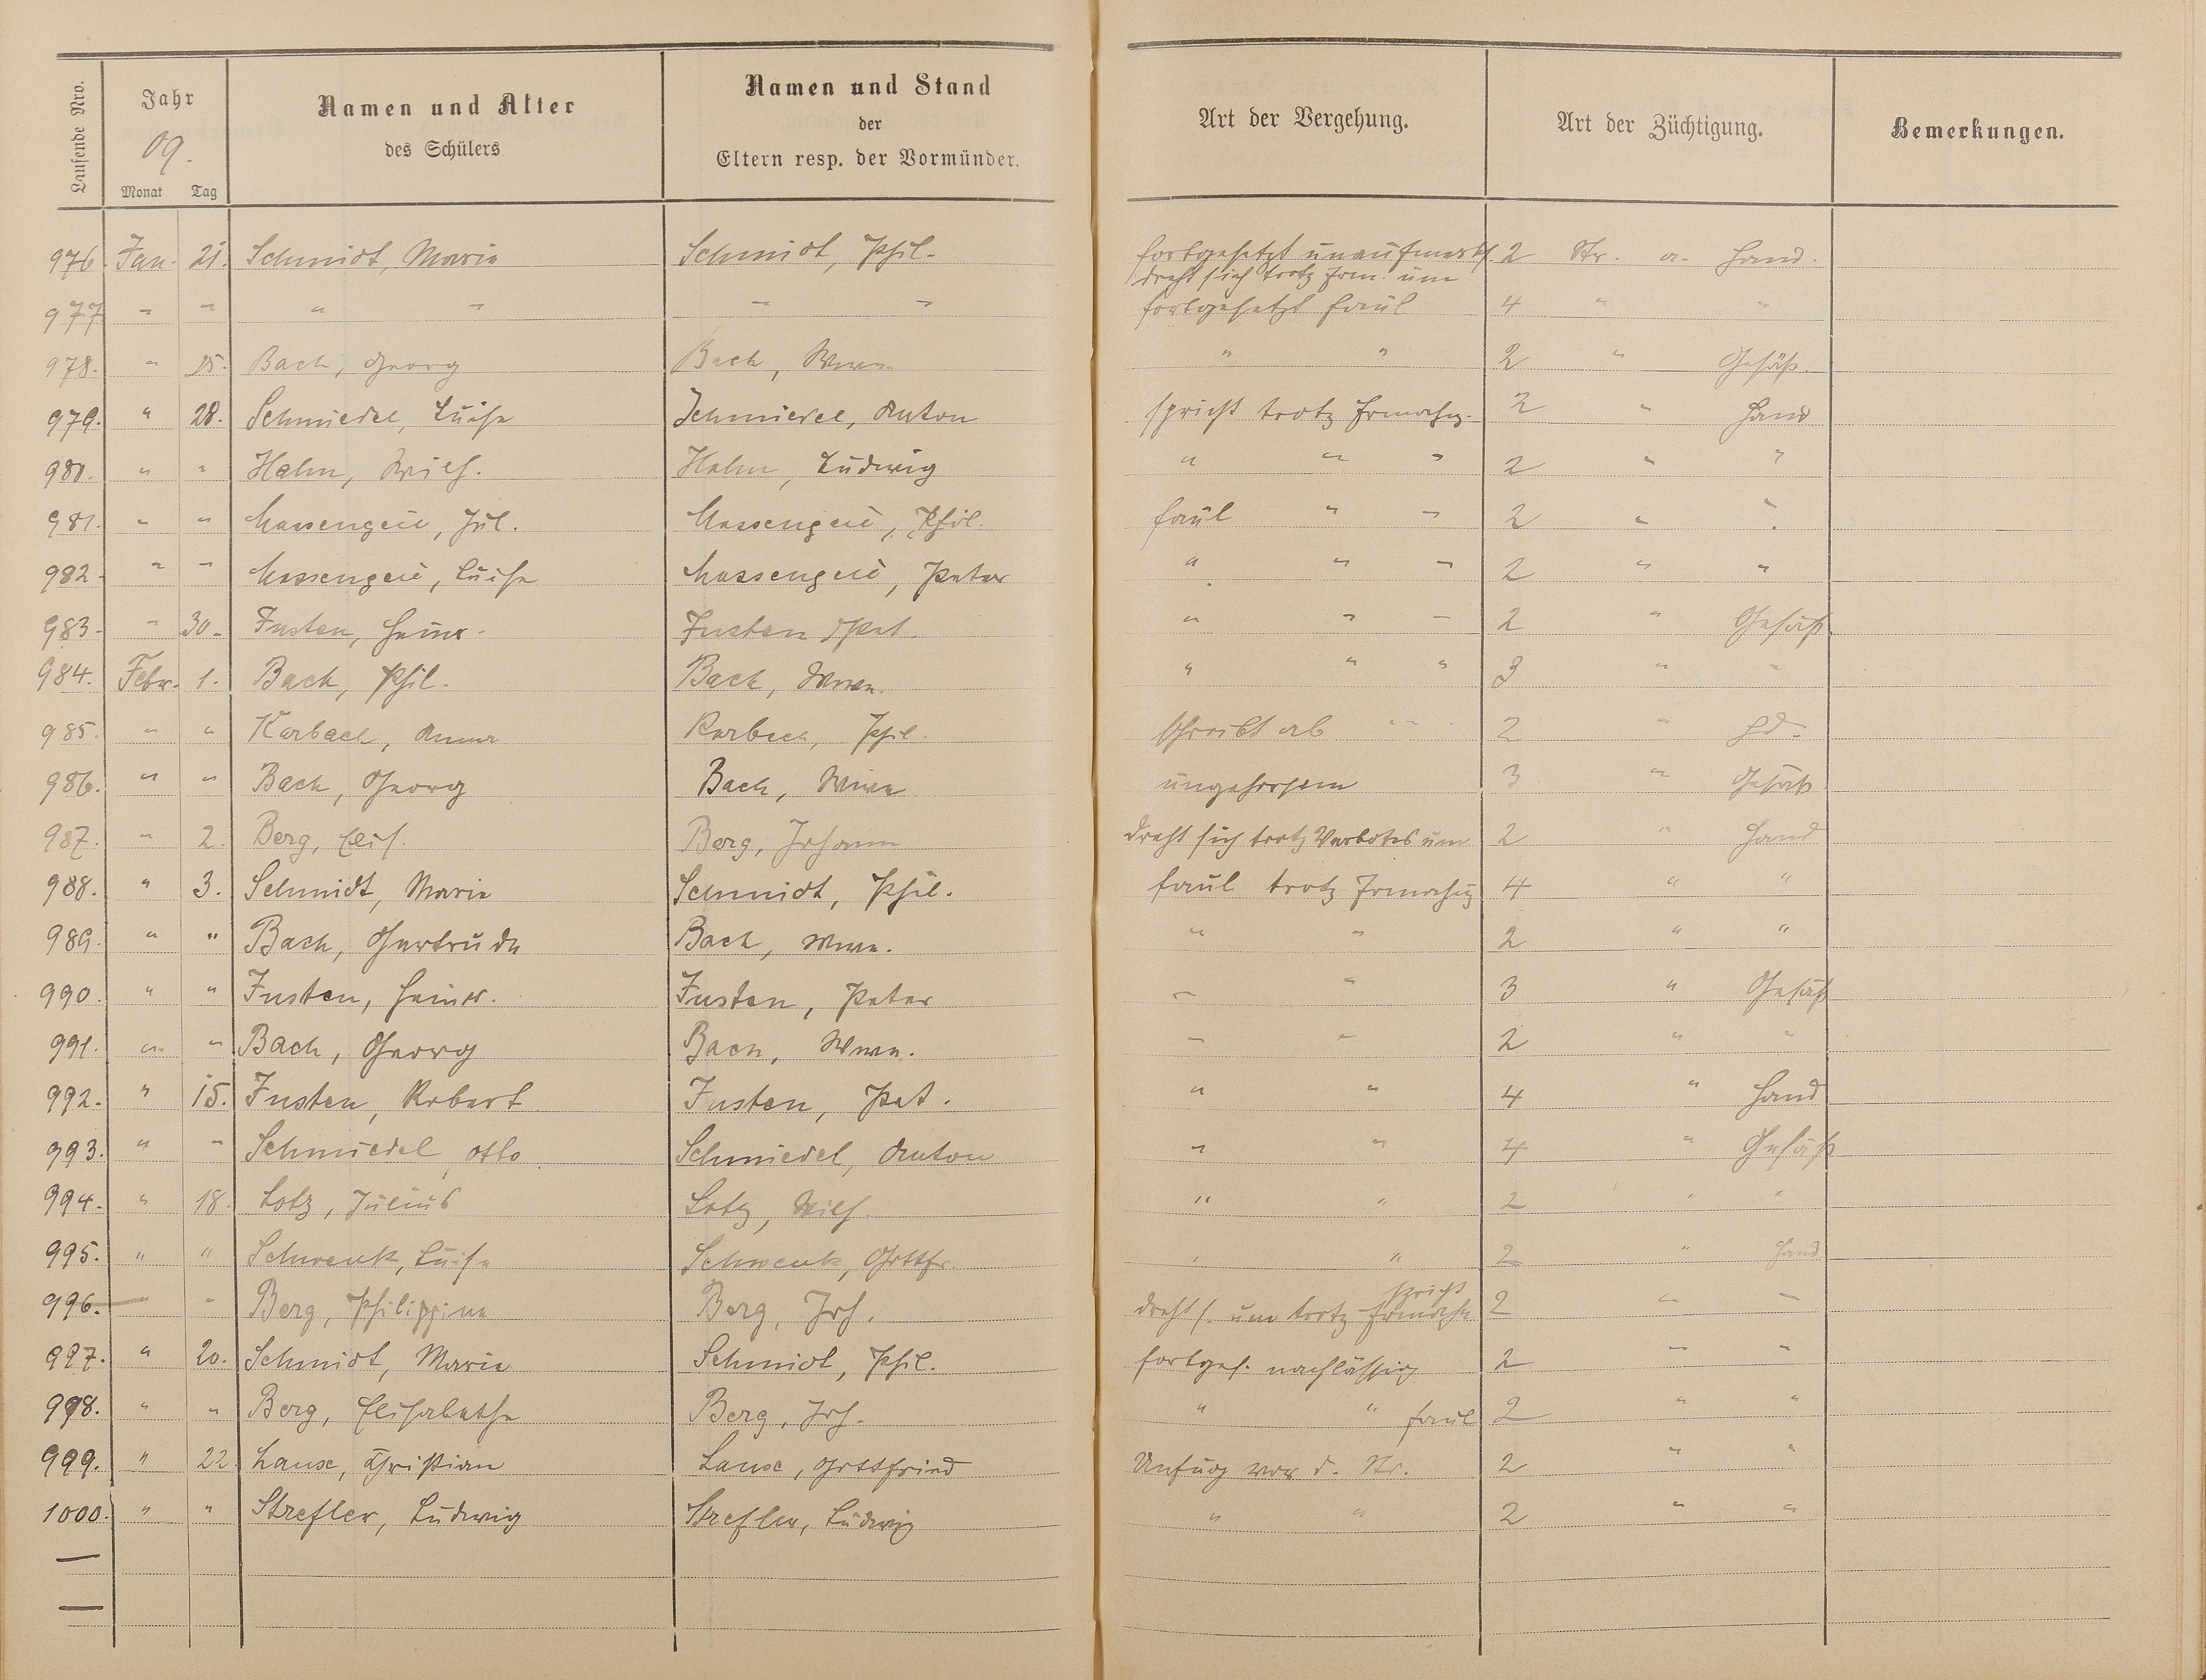 Laufende Nro. | Jahr 09. Monat Tag | Namen und Alter des Schülers | Namen und Stand der Eltern resp. der Vormünder. | Art der Vergehung. | Art der Züchtigung. | Bemerkungen.
976. Jan. 21. Schmidt, Marie | Schmidt, Phil. | fortgesetzt unaufmerks. dreht sich trotz Erm. um | 2 Str. a. Hand.
977 " " " " | " " | fortgesetzt faul | 4 " "
978. " 25. Bach, Georg | Bach, Wwe. | " " | 2 " Gesäß.
979. " 28. Schmiedel, Luise | Schmiedel, Anton | spricht trotz Ermahng. | 2 " Hand
980. " " Hahn, Wilh. | Hahn, Ludwig | " " " | 2 " "
981. " " Massengeil, Jul. | Massengeil, Phil. | faul " " | 2 " "
982. " " Massengeil, Luise | Massengeil, Peter | " " " | 2 " "
983. " 30. Fusten, Heinr. | Fusten Pet. | " " " | 2 " Gesäß
984. Febr. 1. Bach, Phil. | Bach, Wwe. | " " " | 3 " "
985. " " Karbach, Anna | Karbach, Phil. | schreibt ab " " | 2 " Hd.
986. " " Bach, Georg | Bach, Wwe | ungehorsam | 3 " Gesäß
987. " 2. Berg, Elis. | Berg, Johann | dreht sich trotz Verbotes um | 2 " Hand
988. " 3. Schmidt, Marie | Schmidt, Phil. | faul trotz Ermahng | 4 " "
989. " " Bach, Gertrude | Bach, Wwe. | " " | 2 " "
990. " " Fusten, Heinr. | Fusten, Peter | " " | 3 " Gesäß
991. " " Bach, Georg | Bach, Wwe. | " " | 2 " "
992. " 15. Fusten, Robert | Fusten, Pet. | " " | 4 " Hand
993. " " Schmiedel, Otto | Schmiedel, Anton | " " | 4 " Gesäß
994. " 18. Lotz, Julius | Lotz, Wilh. | " " | 2 " "
995. " " Schwenk, Luise | Schwenk, Gottfr. | " " | 2 " Hand
996. " " Berg, Philippine | Berg, Joh. | dreht s. um spricht trotz Ermahn | 2 " "
997. " 20. Schmidt, Marie | Schmidt, Phil. | fortges. nachlässig | 2 " "
998. " " Berg, Elisabethe | Berg, Joh. | " " faul | 2 " "
999. " 22. Lause, Christian | Lause, Gottfried | Unfug vor d. Str. | 2 " "
1000. " " Strefler, Ludwig | Strefler, Ludwig | " " | 2 " "